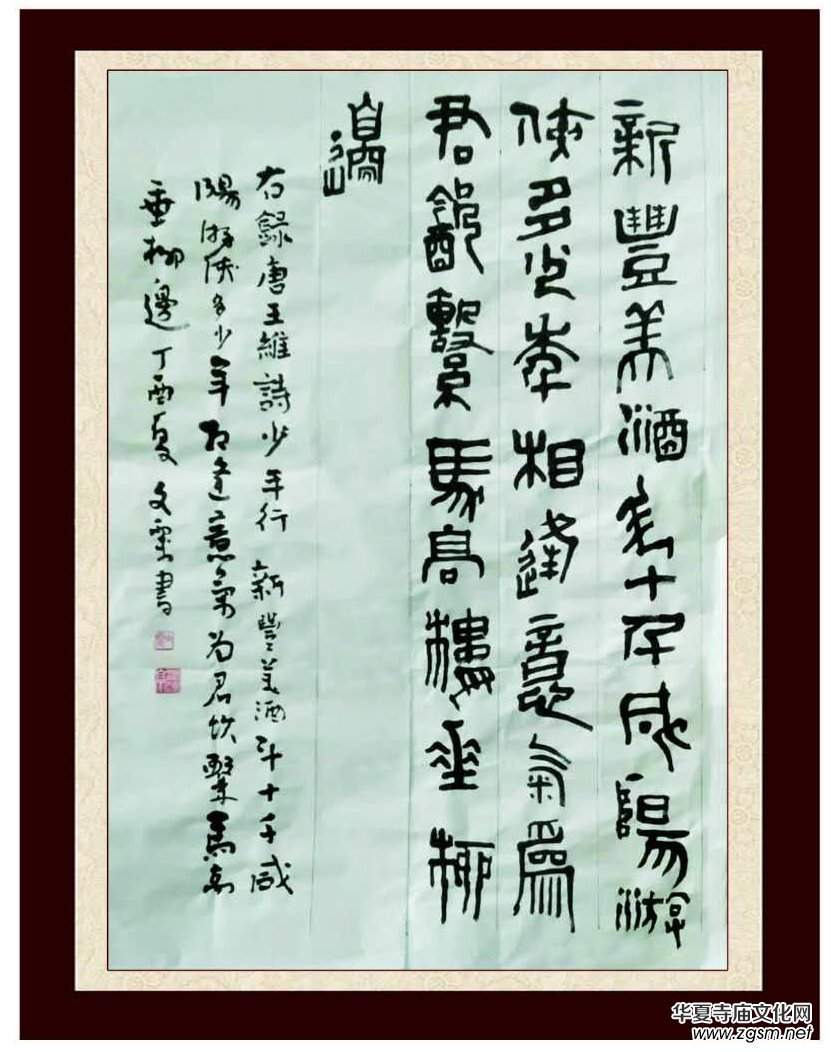 新豐美酒斗十千咸陽游
俠多少年相逢意氣為
君飲繫馬高樓垂柳
邊
右錄唐王維詩少年行 新豐美酒斗十千咸
陽游俠多少年相逢意氣为君饮繫馬高
垂柳邊 丁酉夏 文 書
华夏寺庙文化网
www.zgsm.net